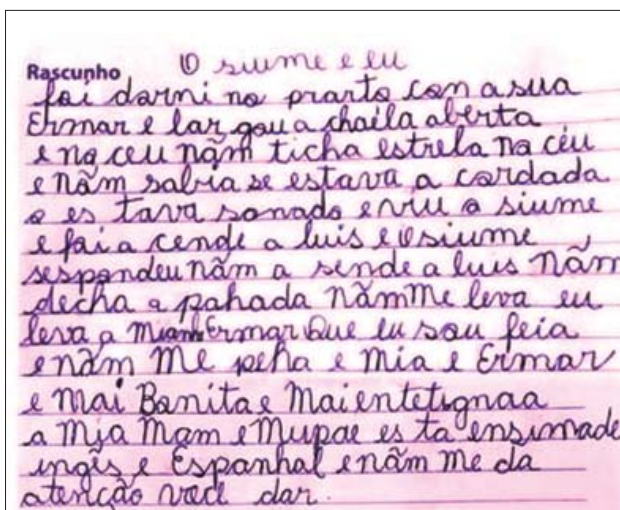 O siume e eu
Rascunho
foi darmi no prarto con a sua
Ermar e largou a chaila aberta
e no ceu nãm ticha estrela no céu
e nãm sabia se estava a cordada
o es tava sonado e viu o siume
e foi a cende a luis e o siume
sespondeu nãm a sende a luis Nãm
decha a pahada nãm Me leva eu
leva a miam Ermar Que eu sou feia
e nãm Me peha e Mia e Ermar
e Mai Bonita e Mai entetignaa
a Mia Mam e Mupae es ta ensimade
ingis e Espanhal e nãm me da
atencção você dar.